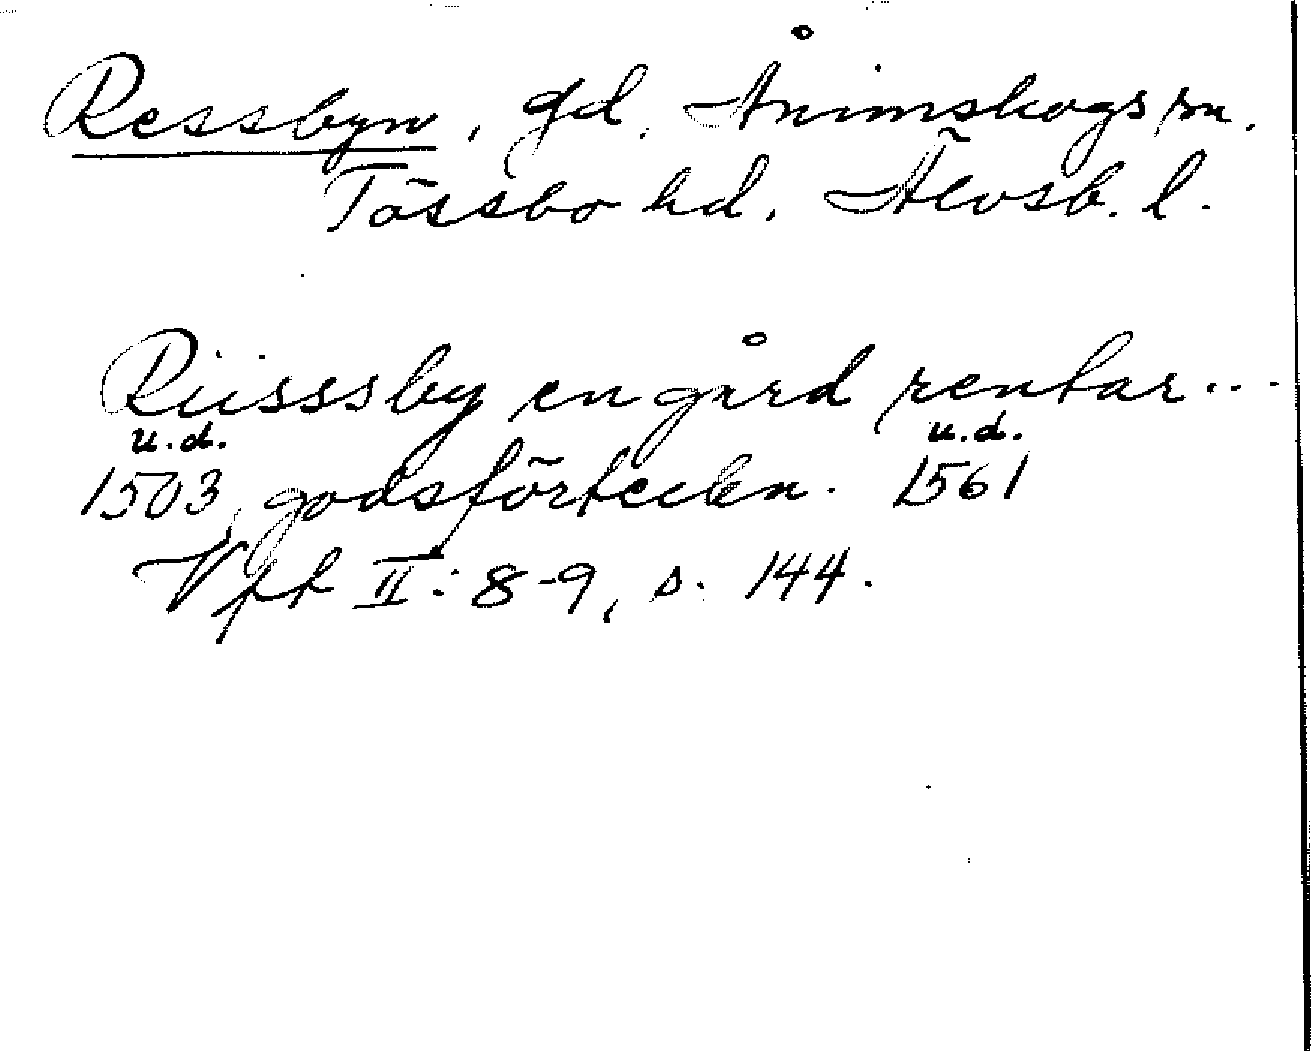 Ressbyn, gd, Ånimskogs sn.
Tössbo hd, Älvsb. l.
Riisssby en gård rentar...
u.d. u.d.
1503 godsförteckn. 1561
Vfk II: 8-9, s. 144.